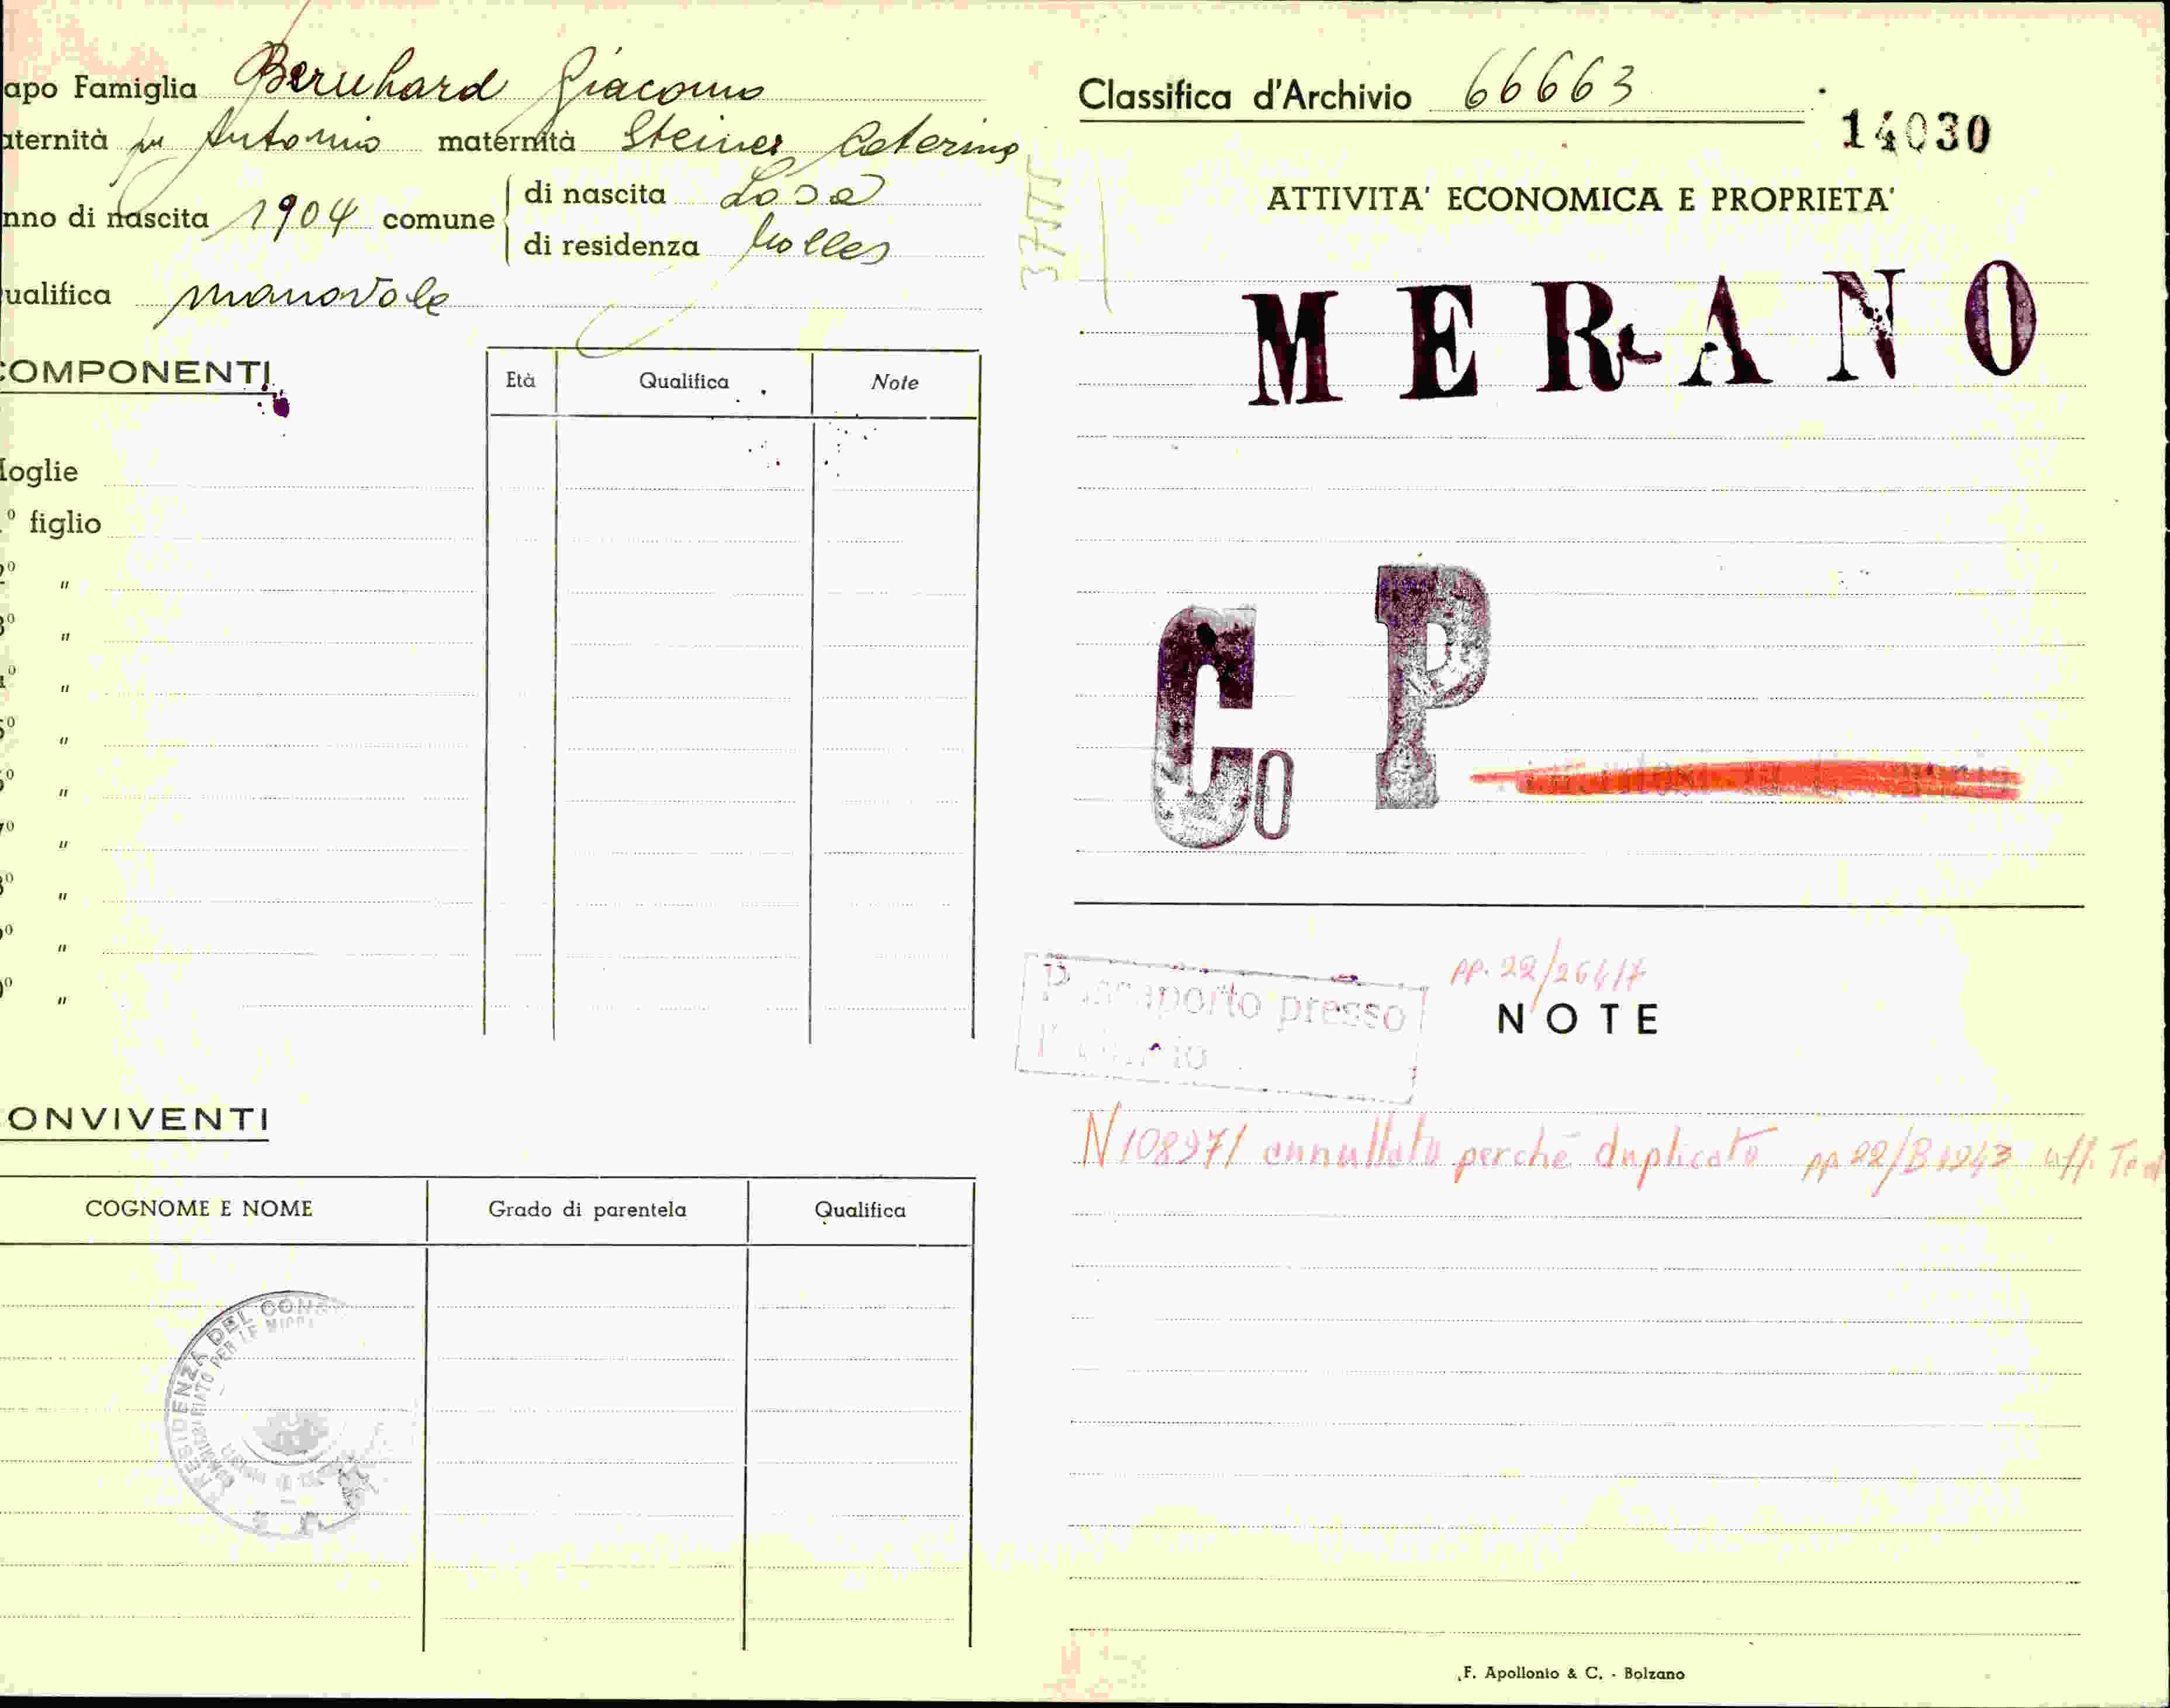 apo Famiglia Bernhard Giacomo
aternità fu Antonio maternità Steiner Caterina
nno di nascita 1904 comune di nascita Lasa
di residenza Malles
ualifica manovale
COMPONENTI
Età Qualifica Note
Moglie
° figlio
2° "
3° "
4° "
5° "
6° "
7° "
8° "
9° "
0° "
ONVIVENTI
COGNOME E NOME Grado di parentela Qualifica
RESIDENZA DEL CONS
COMMISSARIATO PER LE MIGRA
Classifica d'Archivio 66663
14030
ATTIVITA' ECONOMICA E PROPRIETA'
MERANO
Co P
pp. 22/26417
Passaporto presso
NOTE
N 108971 annullato perchè duplicato pp 22/B1943 uff. Ted
F. Apollonio & C. - Bolzano